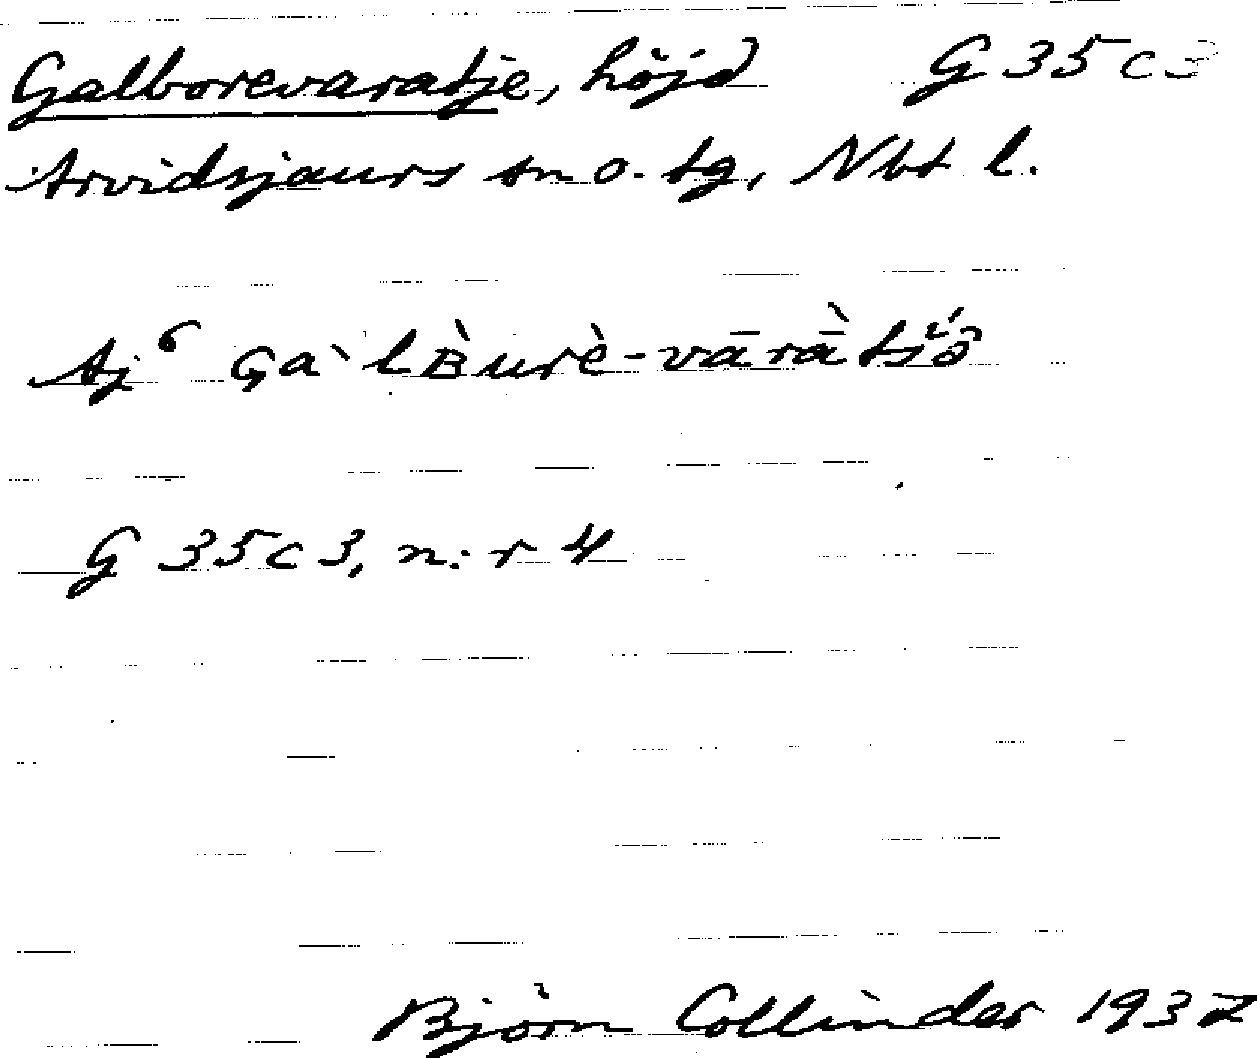 Galborevaratje, höjd G 35 c 3
Arvidsjaurs sn o. tg, Nbt l.
Aj⁶ Ga`lʙ̀urè-vārā̀tšə̂
G 35 c 3, n:r 4
Björn Collinder 1937